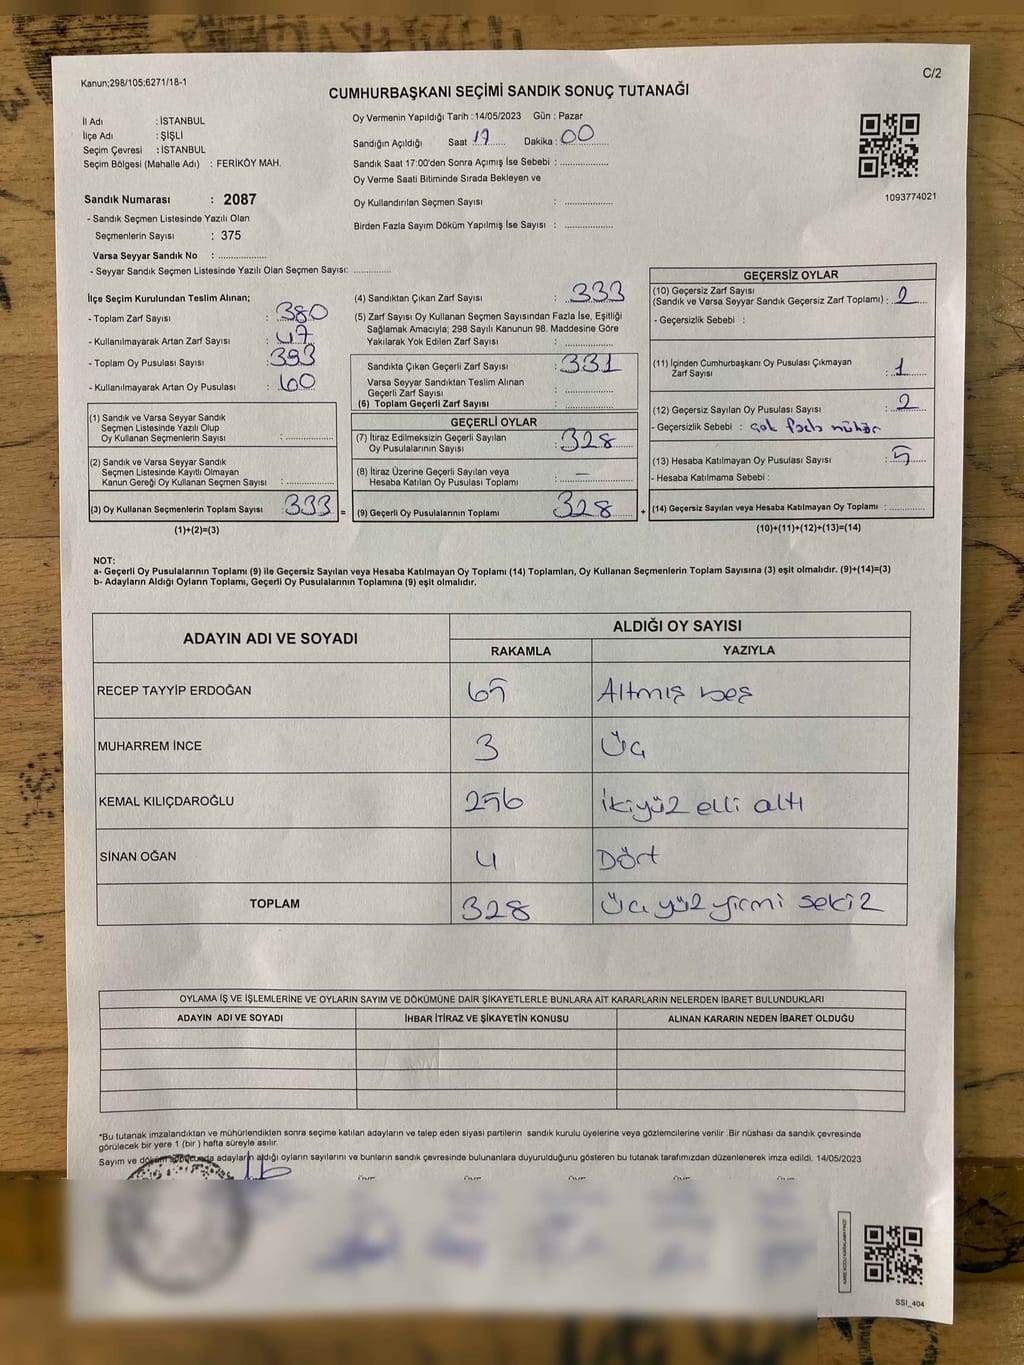 Kanun;298/105;6271/18-1
C/2
CUMHURBAŞKANI SEÇİMİ SANDIK SONUÇ TUTANAĞI
İl Adı : İSTANBUL
İlçe Adı : ŞİŞLİ
Seçim Çevresi : İSTANBUL
Seçim Bölgesi (Mahalle Adı) : FERİKÖY MAH.
Sandık Numarası : 2087
- Sandık Seçmen Listesinde Yazılı Olan
Seçmenlerin Sayısı : 375
Varsa Seyyar Sandık No : ..................
- Seyyar Sandık Seçmen Listesinde Yazılı Olan Seçmen Sayısı: .............
Oy Vermenin Yapıldığı Tarih : 14/05/2023 Gün : Pazar
Sandığın Açıldığı Saat 17 Dakika : 00
Sandık Saat 17:00'den Sonra Açımış İse Sebebi : ................
Oy Verme Saati Bitiminde Sırada Bekleyen ve
Oy Kullandırılan Seçmen Sayısı : ................
Birden Fazla Sayım Döküm Yapılmış İse Sayısı : ................
1093774021
İlçe Seçim Kurulundan Teslim Alınan;
- Toplam Zarf Sayısı : 380
- Kullanılmayarak Artan Zarf Sayısı : 47
- Toplam Oy Pusulası Sayısı : 393
- Kullanılmayarak Artan Oy Pusulası : 60
(1) Sandık ve Varsa Seyyar Sandık
Seçmen Listesinde Yazılı Olup
Oy Kullanan Seçmenlerin Sayısı : ................
(2) Sandık ve Varsa Seyyar Sandık
Seçmen Listesinde Kayıtlı Olmayan
Kanun Gereği Oy Kullanan Seçmen Sayısı : ................
(3) Oy Kullanan Seçmenlerin Toplam Sayısı : 333 =
(1)+(2)=(3)
(4) Sandıktan Çıkan Zarf Sayısı : 333
(5) Zarf Sayısı Oy Kullanan Seçmen Sayısından Fazla İse, Eşitliği
Sağlamak Amacıyla; 298 Sayılı Kanunun 98. Maddesine Göre
Yakılarak Yok Edilen Zarf Sayısı : ................
Sandıkta Çıkan Geçerli Zarf Sayısı : 331
Varsa Seyyar Sandıktan Teslim Alınan
Geçerli Zarf Sayısı : ................
(6) Toplam Geçerli Zarf Sayısı : ................
GEÇERLİ OYLAR
(7) İtiraz Edilmeksizin Geçerli Sayılan
Oy Pusulalarının Sayısı : 328
(8) İtiraz Üzerine Geçerli Sayılan veya
Hesaba Katılan Oy Pusulası Toplamı : —
(9) Geçerli Oy Pusulalarının Toplamı : 328 +
GEÇERSİZ OYLAR
(10) Geçersiz Zarf Sayısı
(Sandık ve Varsa Seyyar Sandık Geçersiz Zarf Toplamı) : 2
- Geçersizlik Sebebi :
(11) İçinden Cumhurbaşkanı Oy Pusulası Çıkmayan
Zarf Sayısı : 1
(12) Geçersiz Sayılan Oy Pusulası Sayısı : 2
- Geçersizlik Sebebi : çok fazla mühür
(13) Hesaba Katılmayan Oy Pusulası Sayısı : 5
- Hesaba Katılmama Sebebi :
(14) Geçersiz Sayılan veya Hesaba Katılmayan Oy Toplamı : ............
(10)+(11)+(12)+(13)=(14)
NOT:
a- Geçerli Oy Pusulalarının Toplamı (9) ile Geçersiz Sayılan veya Hesaba Katılmayan Oy Toplamı (14) Toplamları, Oy Kullanan Seçmenlerin Toplam Sayısına (3) eşit olmalıdır. (9)+(14)=(3)
b- Adayların Aldığı Oyların Toplamı, Geçerli Oy Pusulalarının Toplamına (9) eşit olmalıdır.
ADAYIN ADI VE SOYADI
ALDIĞI OY SAYISI
RAKAMLA YAZIYLA
RECEP TAYYİP ERDOĞAN 65 Altmış beş
MUHARREM İNCE 3 Üç
KEMAL KILIÇDAROĞLU 256 İkiyüz elli altı
SİNAN OĞAN 4 Dört
TOPLAM 328 Üç yüz yirmi sekiz
OYLAMA İŞ VE İŞLEMLERİNE VE OYLARIN SAYIM VE DÖKÜMÜNE DAİR ŞİKAYETLERLE BUNLARA AİT KARARLARIN NELERDEN İBARET BULUNDUKLARI
ADAYIN ADI VE SOYADI İHBAR İTİRAZ VE ŞİKAYETİN KONUSU ALINAN KARARIN NEDEN İBARET OLDUĞU
*Bu tutanak imzalandıktan ve mühürlendikten sonra seçime katılan adayların ve talep eden siyasi partilerin sandık kurulu üyelerine veya gözlemcilerine verilir .Bir nüshası da sandık çevresinde
görülecek bir yere 1 (bir ) hafta süreyle asılır.
Sayım ve döküm sonucunda adayların aldığı oyların sayılarını ve bunların sandık çevresinde bulunanlara duyurulduğunu gösteren bu tutanak tarafımızdan düzenlenerek imza edildi. 14/05/2023
SSI_404